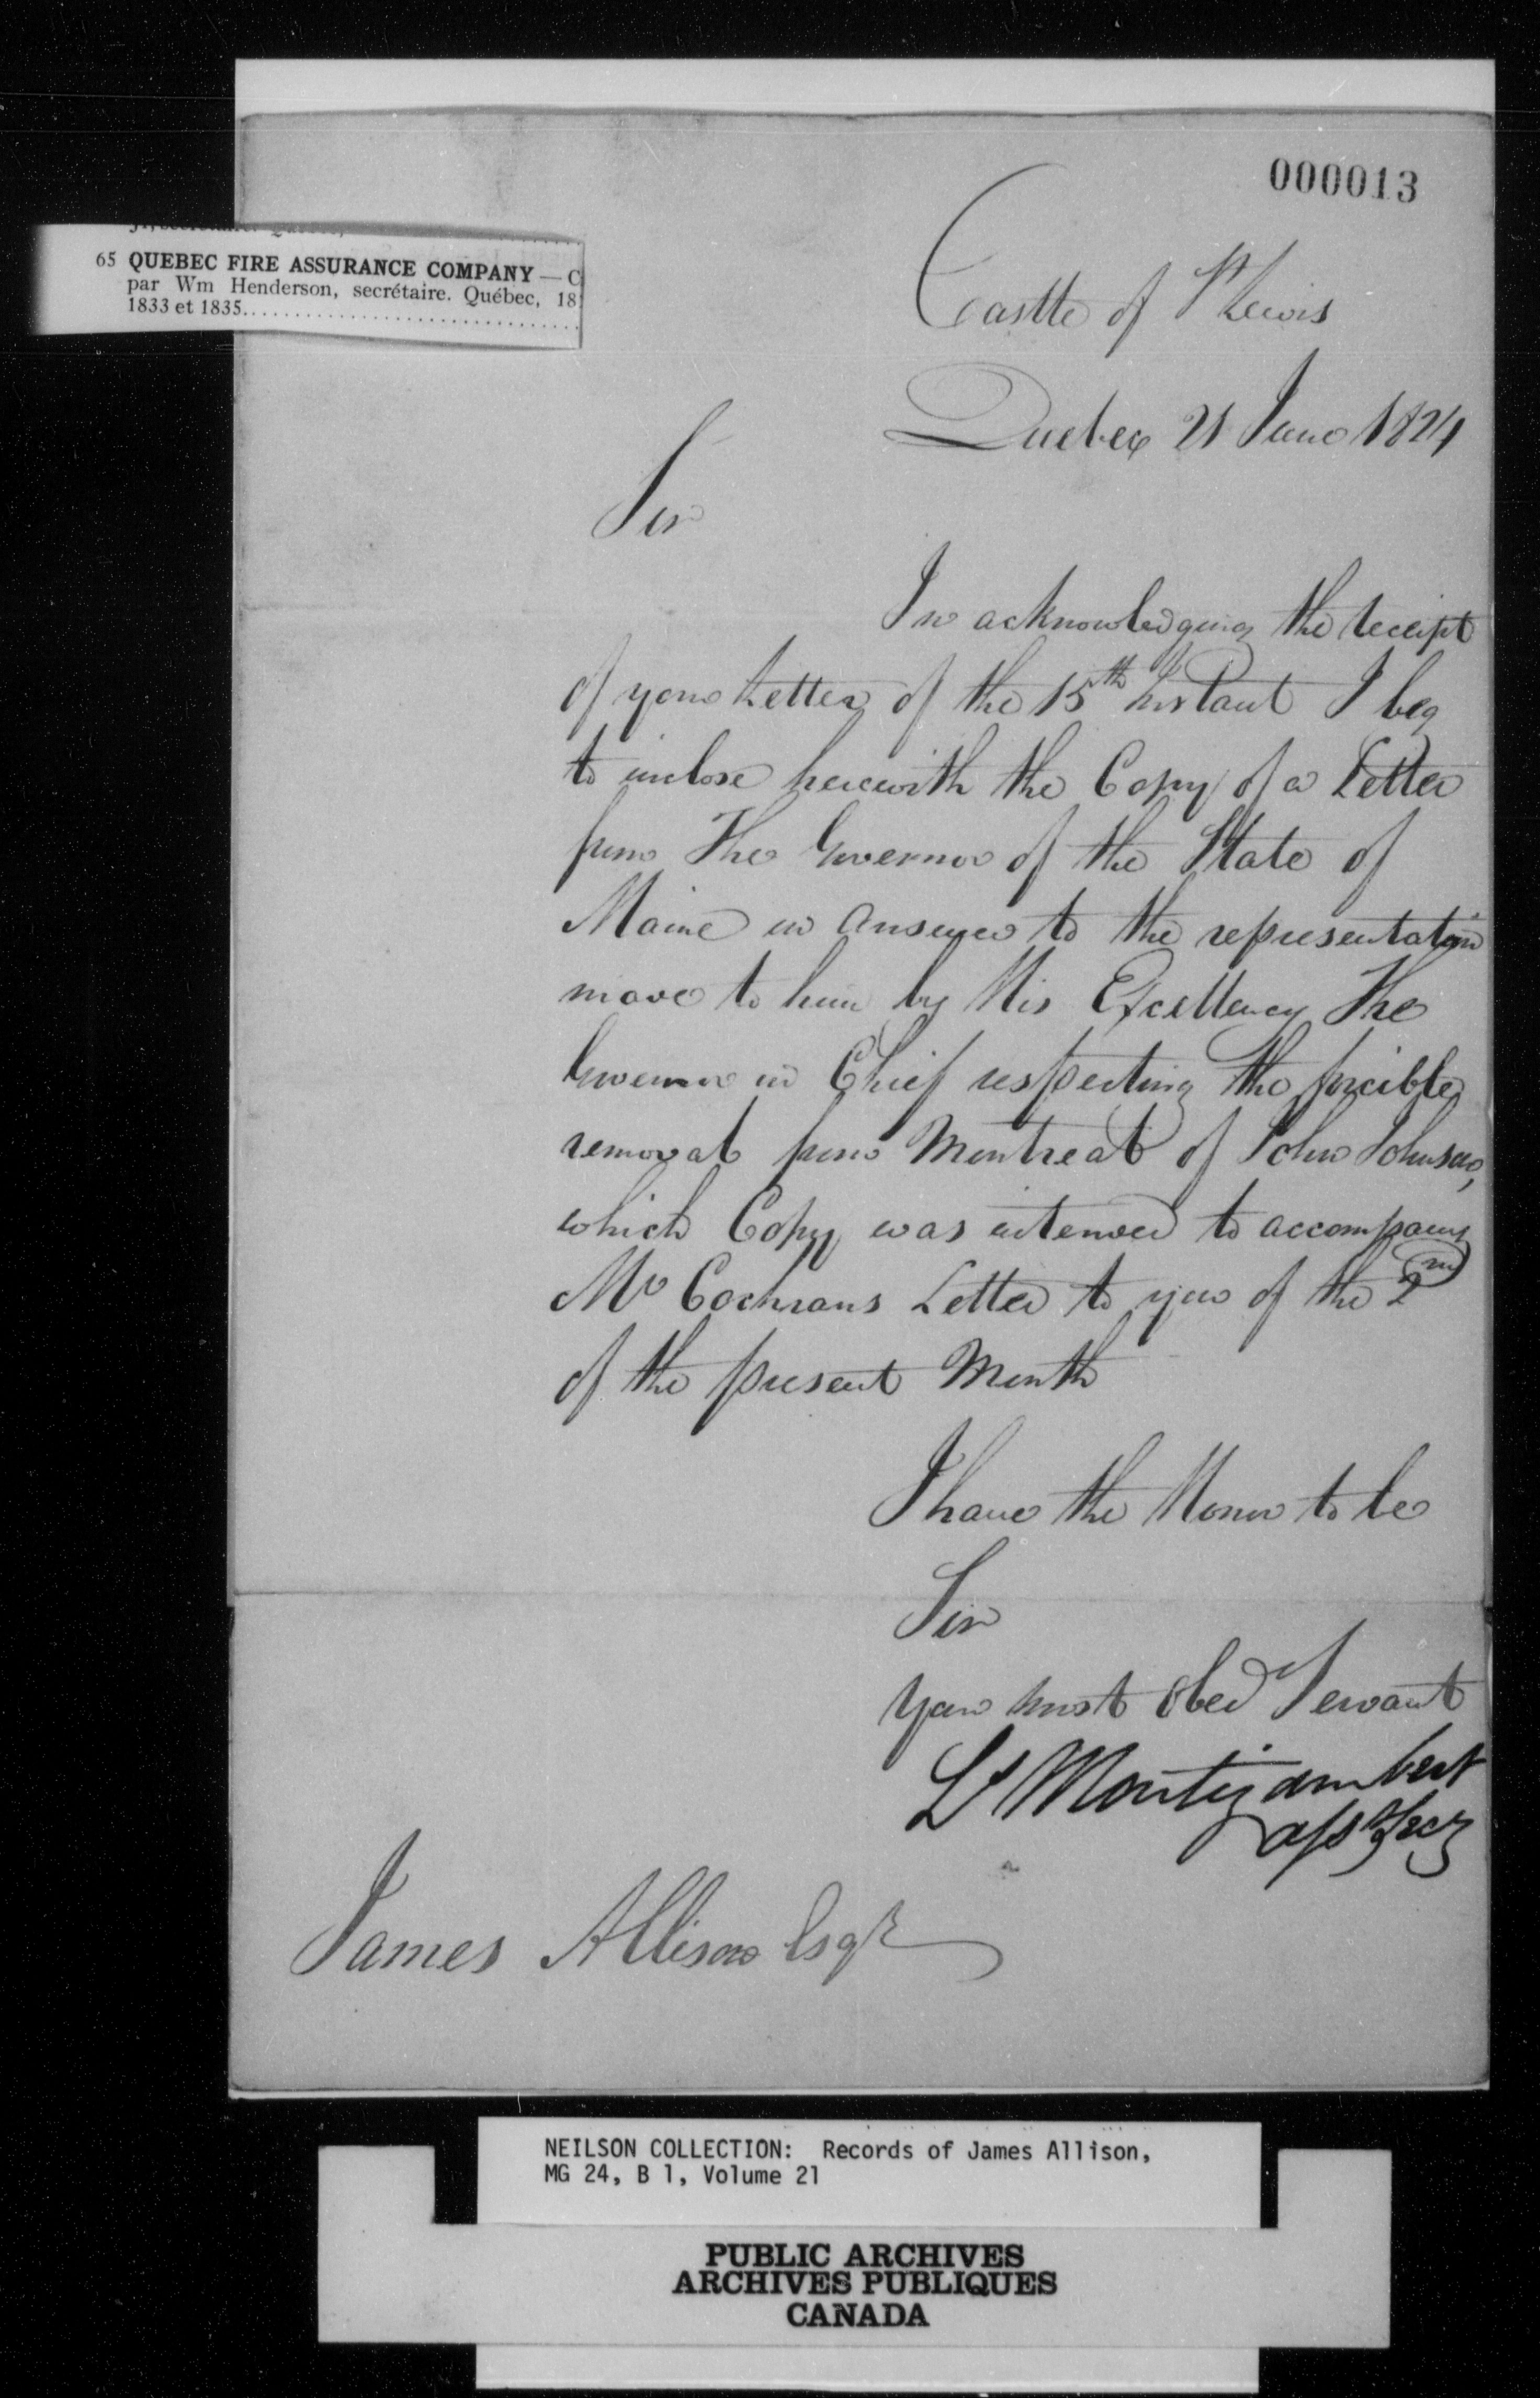 000013
65 QUEBEC FIRE ASSURANCE COMPANY — C
par Wm Henderson, secrétaire. Québec, 18
1833 et 1835
Castle of St Lewis
Quebec 21 June 1824
Sir
In acknowledging the receipt
of your Letter of the 15th Instant I beg
to inclose herewith the Copy of a Letter
from The Governor of the State of
Maine in Answer to the representation
made to him by His Excellency The
Governor in Chief respecting the forcible
removal from Montreal of John Johnson,
which Copy was intended to accompany
Mr Cochrans Letter to you of the 2nd
of the present Month
I have the Honor to be
Sir
Your most Obed Servant
Ls Montizambert
ass Secy
James Allison Esqr
NEILSON COLLECTION: Records of James Allison,
MG 24, B 1, Volume 21
PUBLIC ARCHIVES
ARCHIVES PUBLIQUES
CANADA